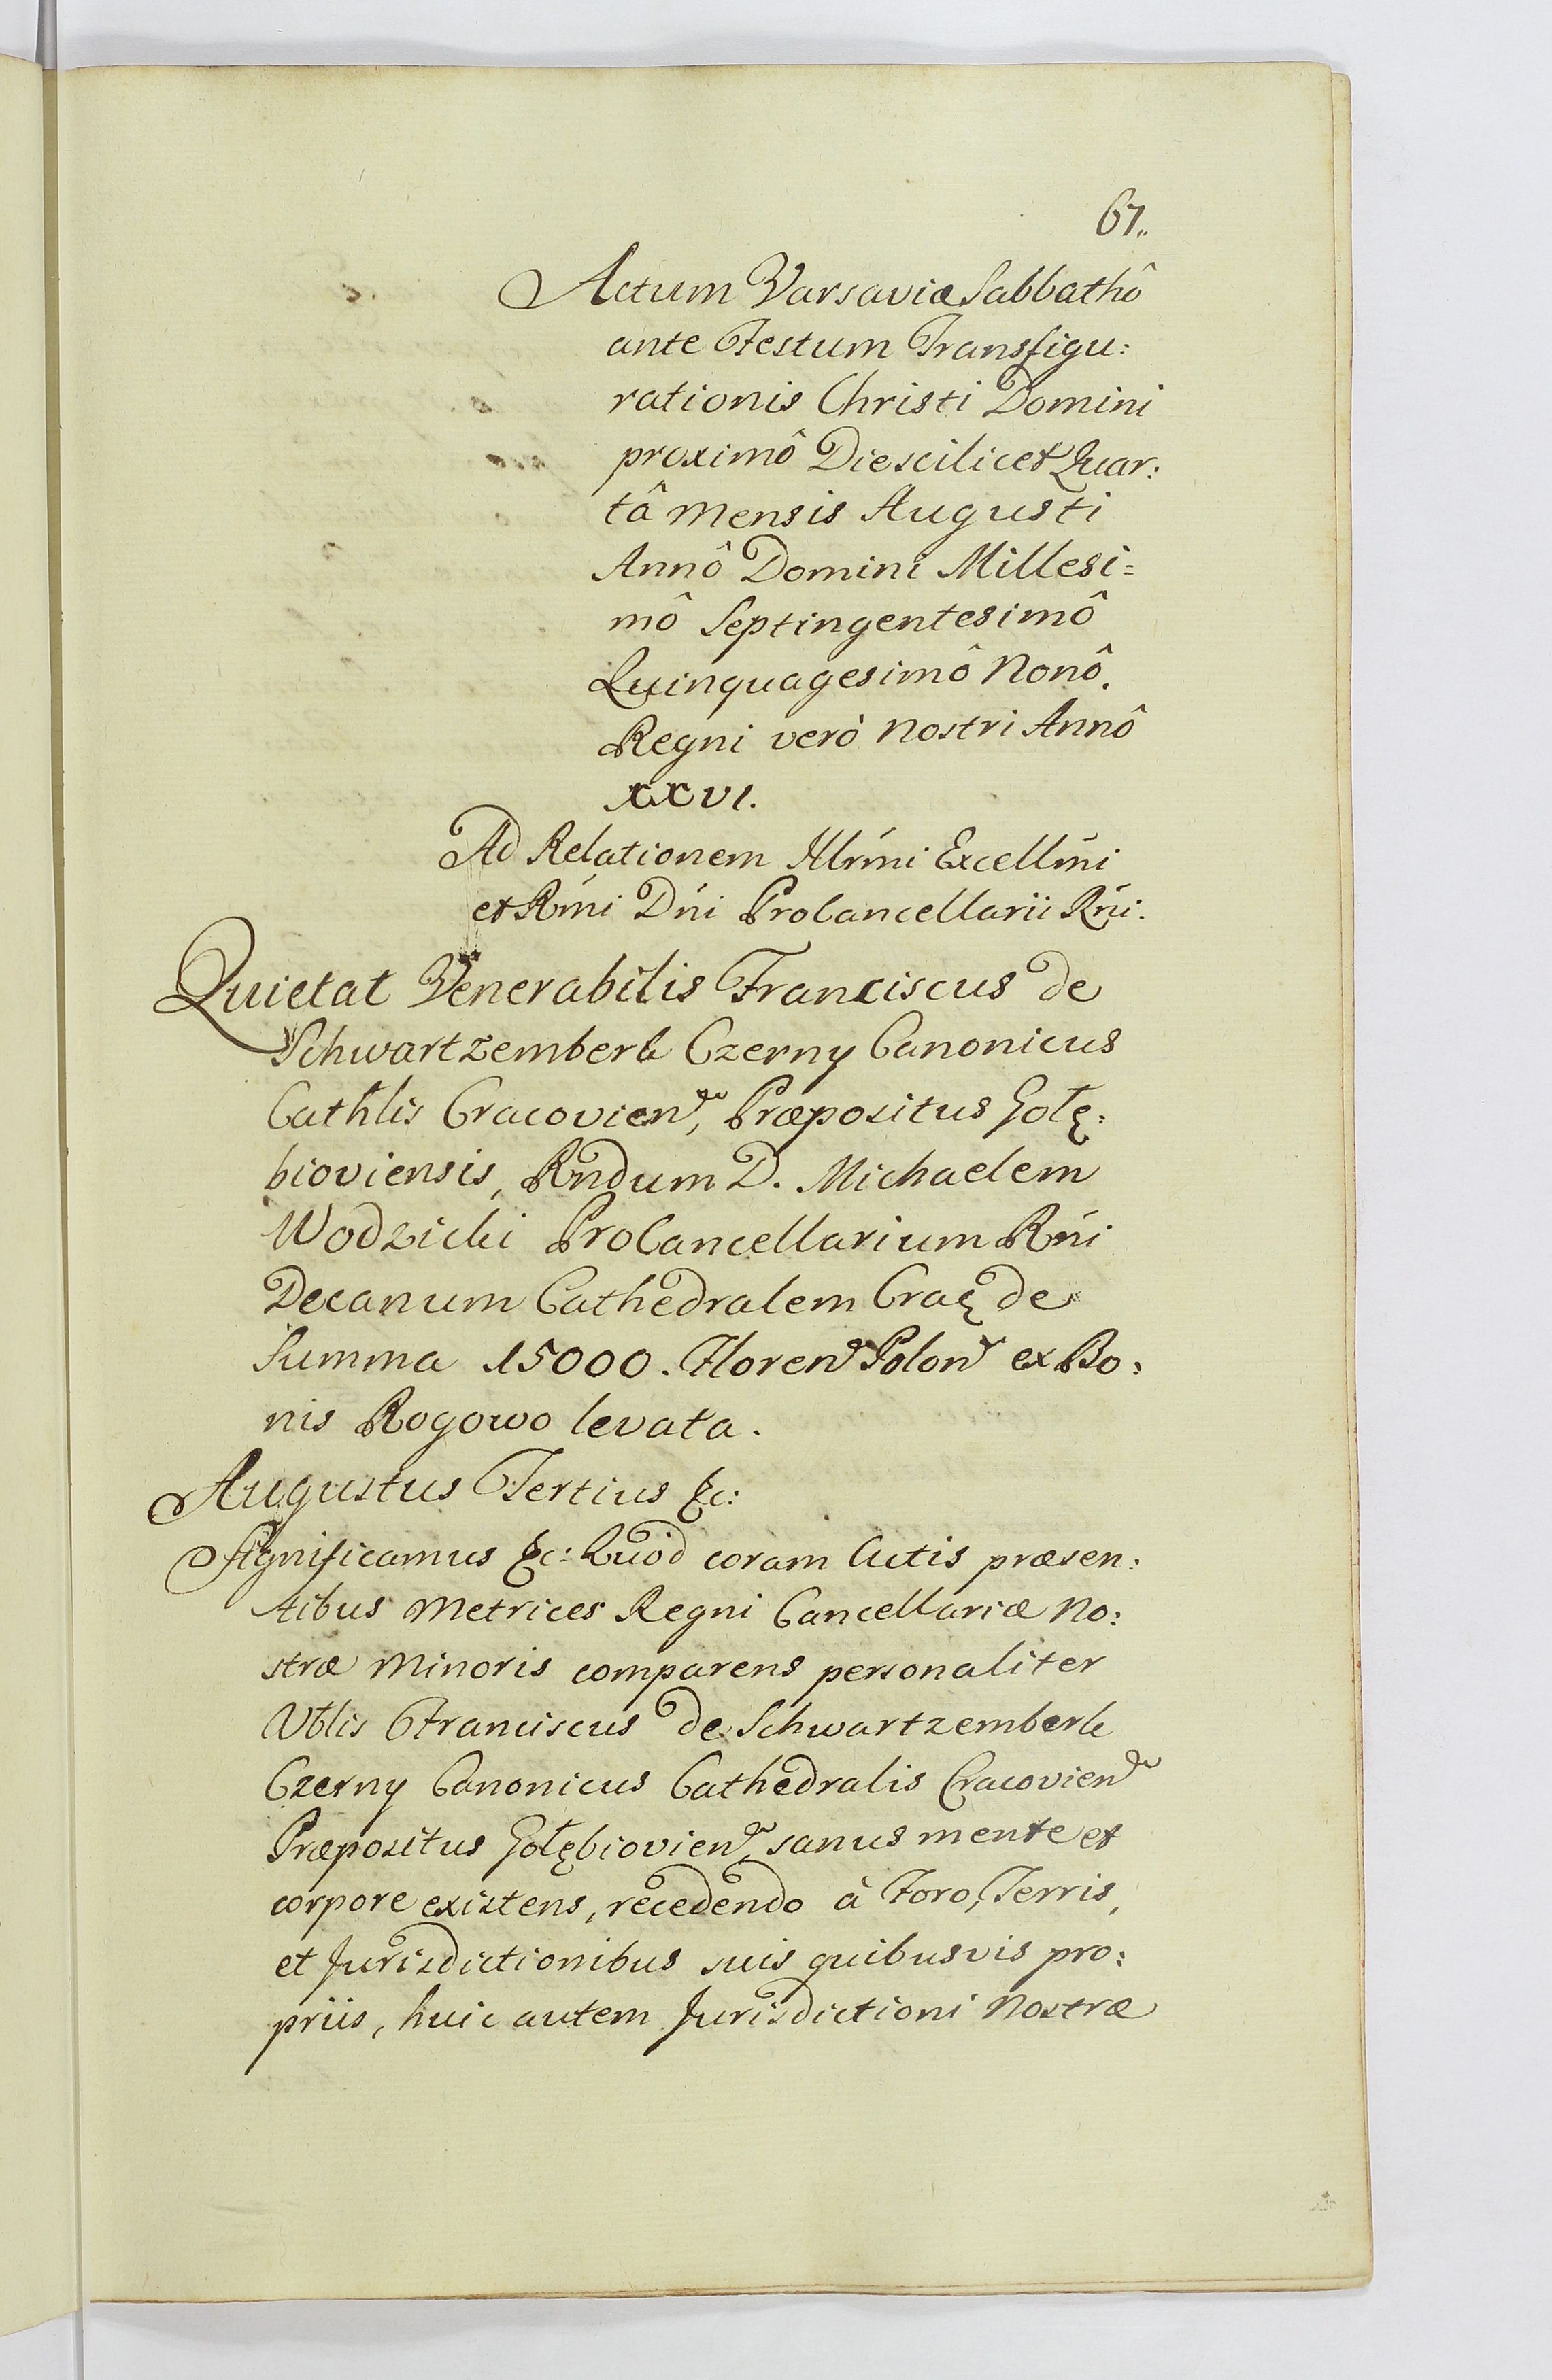 67.
Actum Varsaviæ Sabbathô
ante Festum Transfigu:
rationis Christi Domini
proximô Die scilicet Quar:
tâ Mensis Augusti
Annô Domini Millesi=
mô Septingentesimô
Quinquagesimô Nonô.
Regni verò Nostri Annô
XXVI.
Ad Relationem Illrmi Excellmi
et Rmi Dni ProCancellarii Rni.
Quietat Venerabilis Franciscus de
Schwartzemberk Czerny Canonicus
Cathlis Cracovien, Præpositus Gołę:
bioviensis, Rndum D. Michaelem
Wodzicki ProCancellarium Rni
Decanum Cathedralem Crac de
Summa 15000. Floren Polon ex Bo:
nis Rogowo levata.
Augustus Tertius &c:
Significamus &c: Quòd coram Actis præsen:
tibus Metrices Regni Cancellariæ No:
stræ Minoris comparens personaliter
Vblis Franciscus de Schwartzemberk
Czerny Canonicus Cathedralis Cracovien
Præpositus Gołębiovien, sanus mente et
corpore existens, recedendo à Foro, Terris,
et Jurisdictionibus suis quibusvis pro:
priis, huic autem Jurisdictioni Nostræ